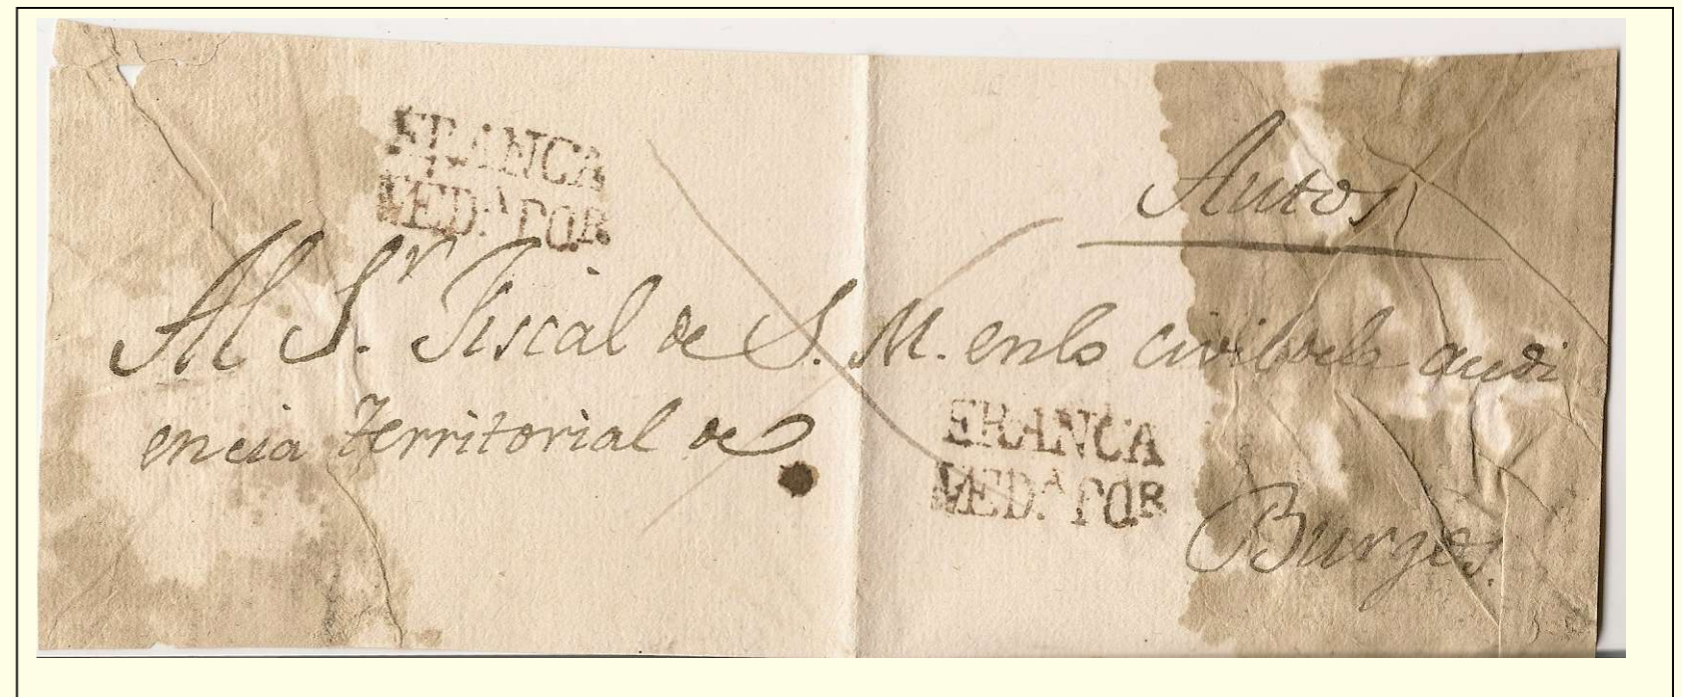 FRANCA
MED.A POR
Autos
Al S.r Fiscal de S. M. enlo civil dela audi
encia Territorial de
FRANCA
MED.A POR
Burgos.